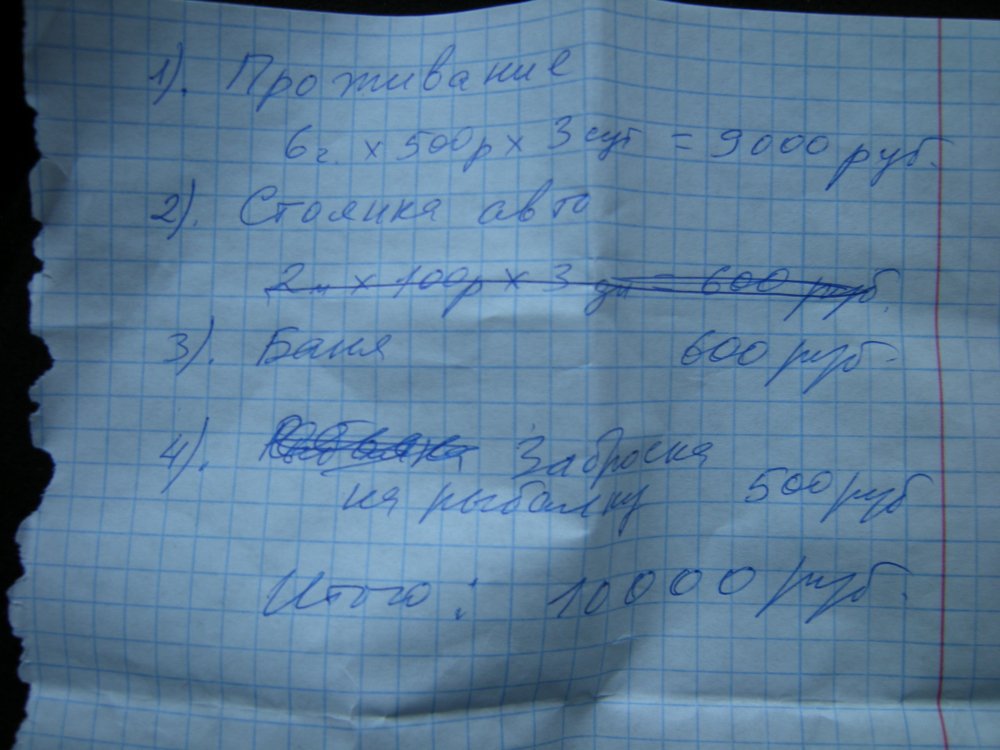 1). Проживание
6 г. х 500р х 3 сут = 9000 руб.
2). Стоянка авто
2м х 100р х 3 дн = 600 руб.
3). Баня 600 руб.
4). Заброска
на рыбалку 500 руб
Итого: 10000 руб.